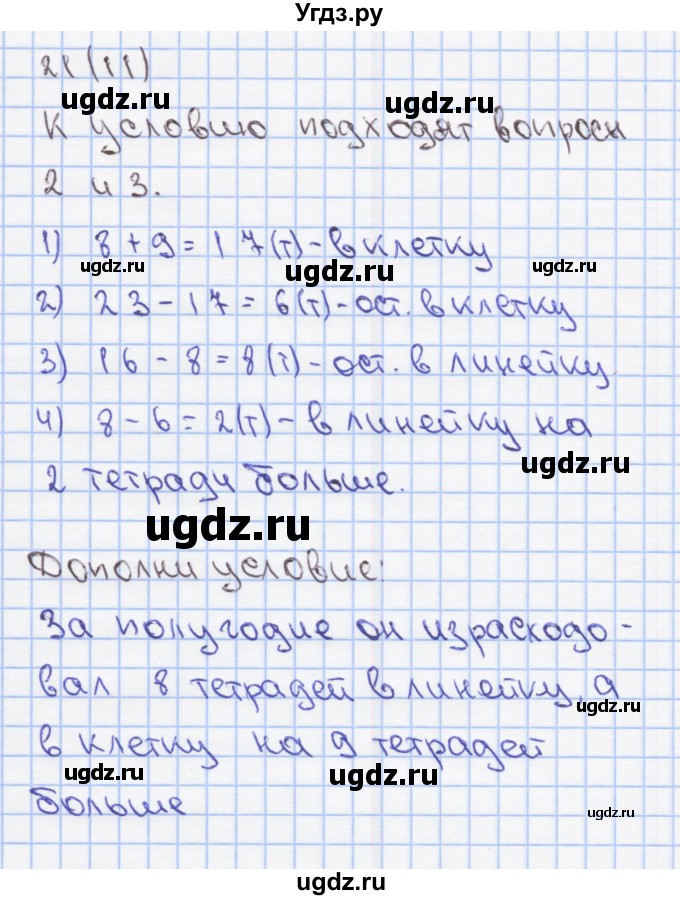 Угдз.ру
21 (11)
ugdz.ru ugdz.ru
К условию подходят вопросы
2 и 3.
1) 8 + 9 = 17 (т) - в клетку
ugdz.ru ugdz.ru ugdz.ru
2) 23 - 17 = 6 (т) - ост. в клетку
3) 16 - 8 = 8 (т) - ост. в линейку
ugdz.ru ugdz.ru
4) 8 - 6 = 2 (т) - в линейку на
2 тетради больше.
ugdz.ru
ugdz.ru
Дополни условие:
За полугодие он израсходо-
вал 8 тетрадей в линейку, а
ugdz.ru
в клетку на 9 тетрадей
ugdz.ru ugdz.ru
больше
ugdz.ru
ugdz.ru